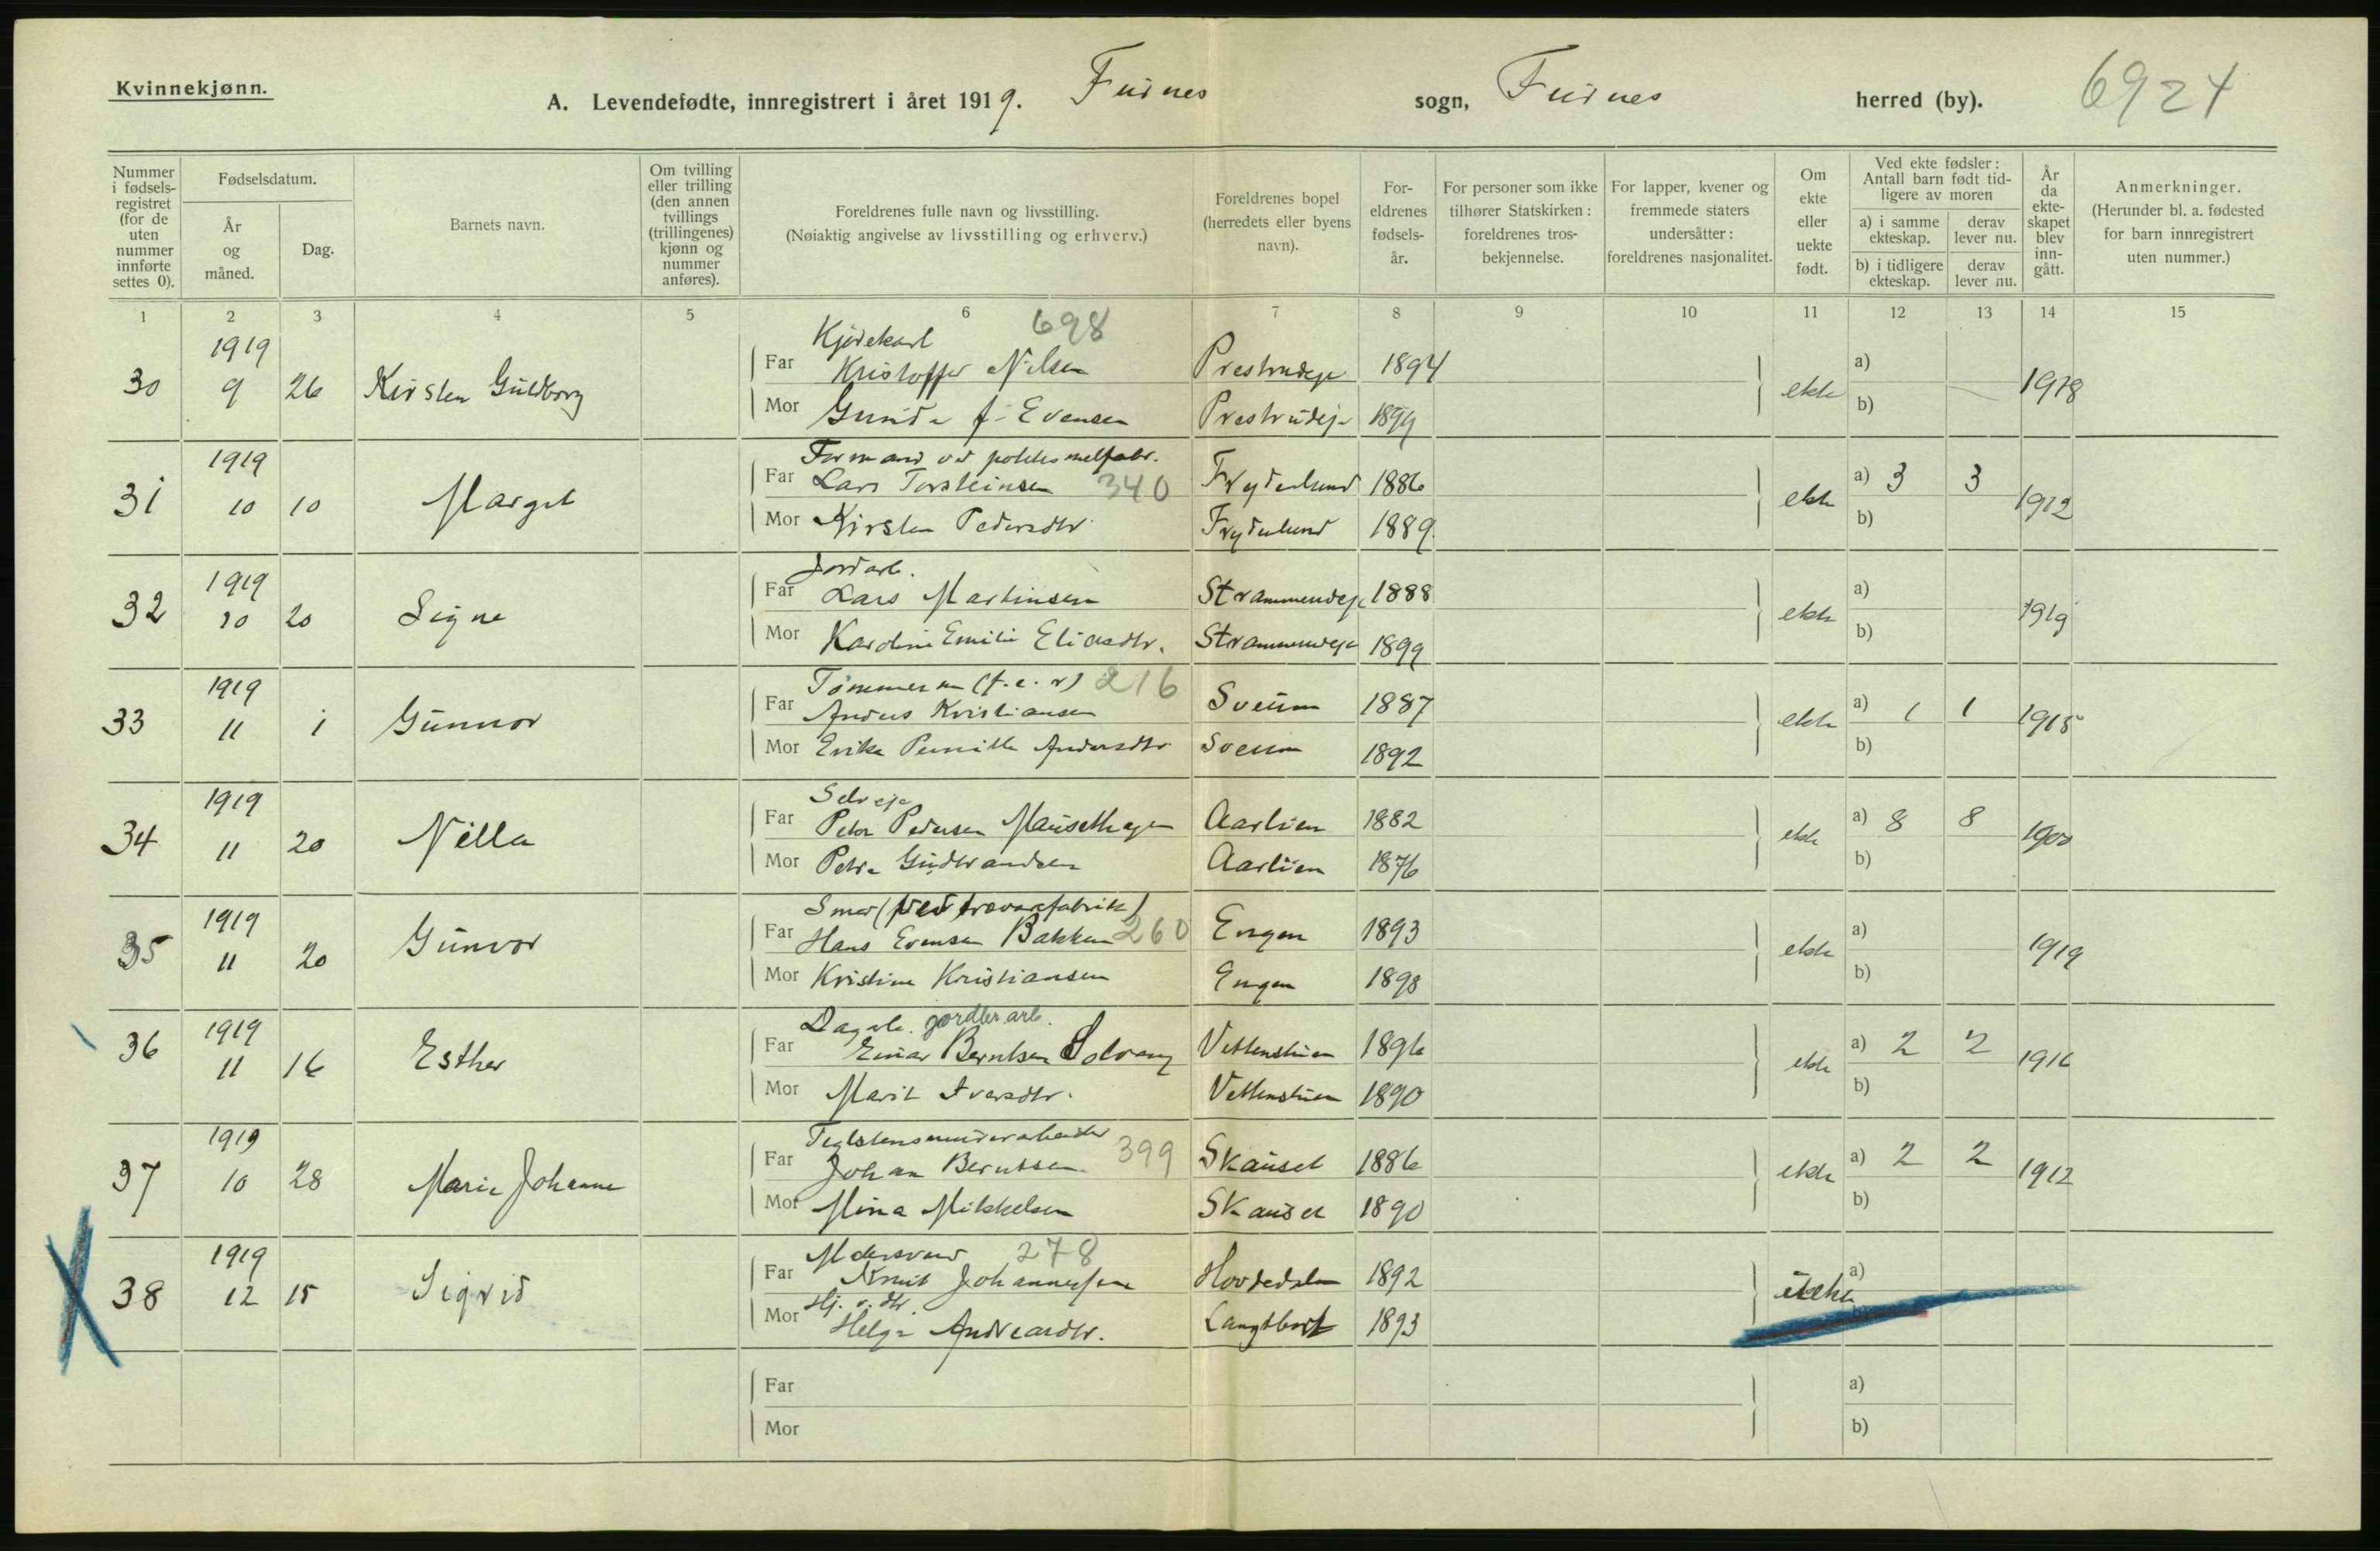 Kvinnekjønn.
A. Levendefødte, innregistrert i året 1919. Furnes sogn, Furnes herred (by). 6924
Nummer i fødsels-registret (for de uten nummer innførte settes 0).
Fødselsdatum.
År og måned.
Dag.
Barnets navn.
Om tvilling eller trilling (den annen tvillings (trillingenes) kjønn og nummer anføres).
Foreldrenes fulle navn og livsstilling.
(Nøiaktig angivelse av livsstilling og erhverv.)
Foreldrenes bopel (herredets eller byens navn).
For-eldrenes fødsels-år.
For personer som ikke tilhører Statskirken: foreldrenes tros-bekjennelse.
For lapper, kvener og fremmede staters undersåtter: foreldrenes nasjonalitet.
Om ekte eller uekte født.
Ved ekte fødsler: Antall barn født tid-ligere av moren
a) i samme ekteskap. derav lever nu.
b) i tidligere ekteskap. derav lever nu.
År da ekte-skapet blev inn-gått.
Anmerkninger.
(Herunder bl. a. fødested for barn innregistrert uten nummer.)
1 2 3 4 5 6 7 8 9 10 11 12 13 14 15
1919 Kjørekarl 698
30 9 26 Kirsten Guldborg Far Kristoffer Nilsen Prestrudeje 1894 ekte a) 1918
Mor Gunda f. Evensen Prestrudeje 1899 b)
1919 Formand ved potetesmelfabr.
31 10 10 Margit Far Lars Torsteinsen 340 Frydenlund 1886 ekte a) 3 3 1912
Mor Kirsten Pedersdtr. Frydenlund 1889 b)
1919 Jordarb.
32 10 20 Signe Far Lars Martinsen Strammendeje 1888 ekte a) 1919
Mor Karoline Emilie Eliasdtr. Strammendeje 1899 b)
1919 Tömmerm (f. e. r) 216
33 11 1 Gunnor Far Anders Kristiansen Sveum 1887 ekte a) 1 1 1915
Mor Erika Pernille Andersdtr Sveum 1892 b)
1919 Selveje
34 11 20 Nilla Far Peter Pedersen Mausethagen Aarlien 1882 ekte a) 8 8 1900
Mor Petra Gudbrandsen Aarlien 1876 b)
1919 Smed (ved trævarefabrik)
35 11 20 Gunvor Far Hans Evensen Bakken 260 Engen 1893 ekte a) 1919
Mor Kristine Kristiansen Engen 1898 b)
1919 Dagarb. gordbr.arb.
36 11 16 Esther Far Einar Berntsen Solvang Vettenstuen 1896 ekte a) 2 2 1916
Mor Marit Iversdtr. Vettenstuen 1890 b)
1919 Teglstensmurerarbeider
37 10 28 Marie Johanne Far Johan Berntsen 399 Skauset 1886 ekte a) 2 2 1912
Mor Mina Mikkelsen Skauset 1890 b)
1919 278
38 12 15 Sigrid Far Knut Johannessen Hovdedalen 1892 uekte a)
Hj. v. dtr.
Mor Helga Andreasdtr. 1893 b)
Far a)
Mor b)